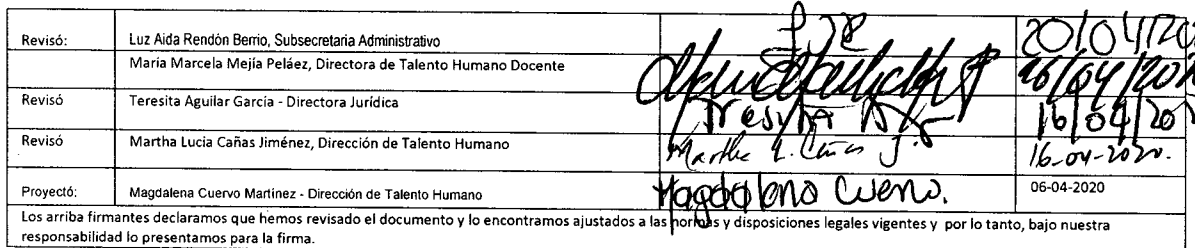 Revisó: Luz Aida Rendón Berrio, Subsecretaria Administrativo 20/04/20
María Marcela Mejía Peláez, Directora de Talento Humano Docente 16/04/20
Revisó Teresita Aguilar García - Directora Jurídica Teresita 16/04/20
Revisó Martha Lucia Cañas Jiménez, Dirección de Talento Humano Martha L. Cañas J. 16-04-2020.
Proyectó: Magdalena Cuervo Martínez - Dirección de Talento Humano Magdalena Cuervo. 06-04-2020
Los arriba firmantes declaramos que hemos revisado el documento y lo encontramos ajustados a las normas y disposiciones legales vigentes y por lo tanto, bajo nuestra
responsabilidad lo presentamos para la firma.